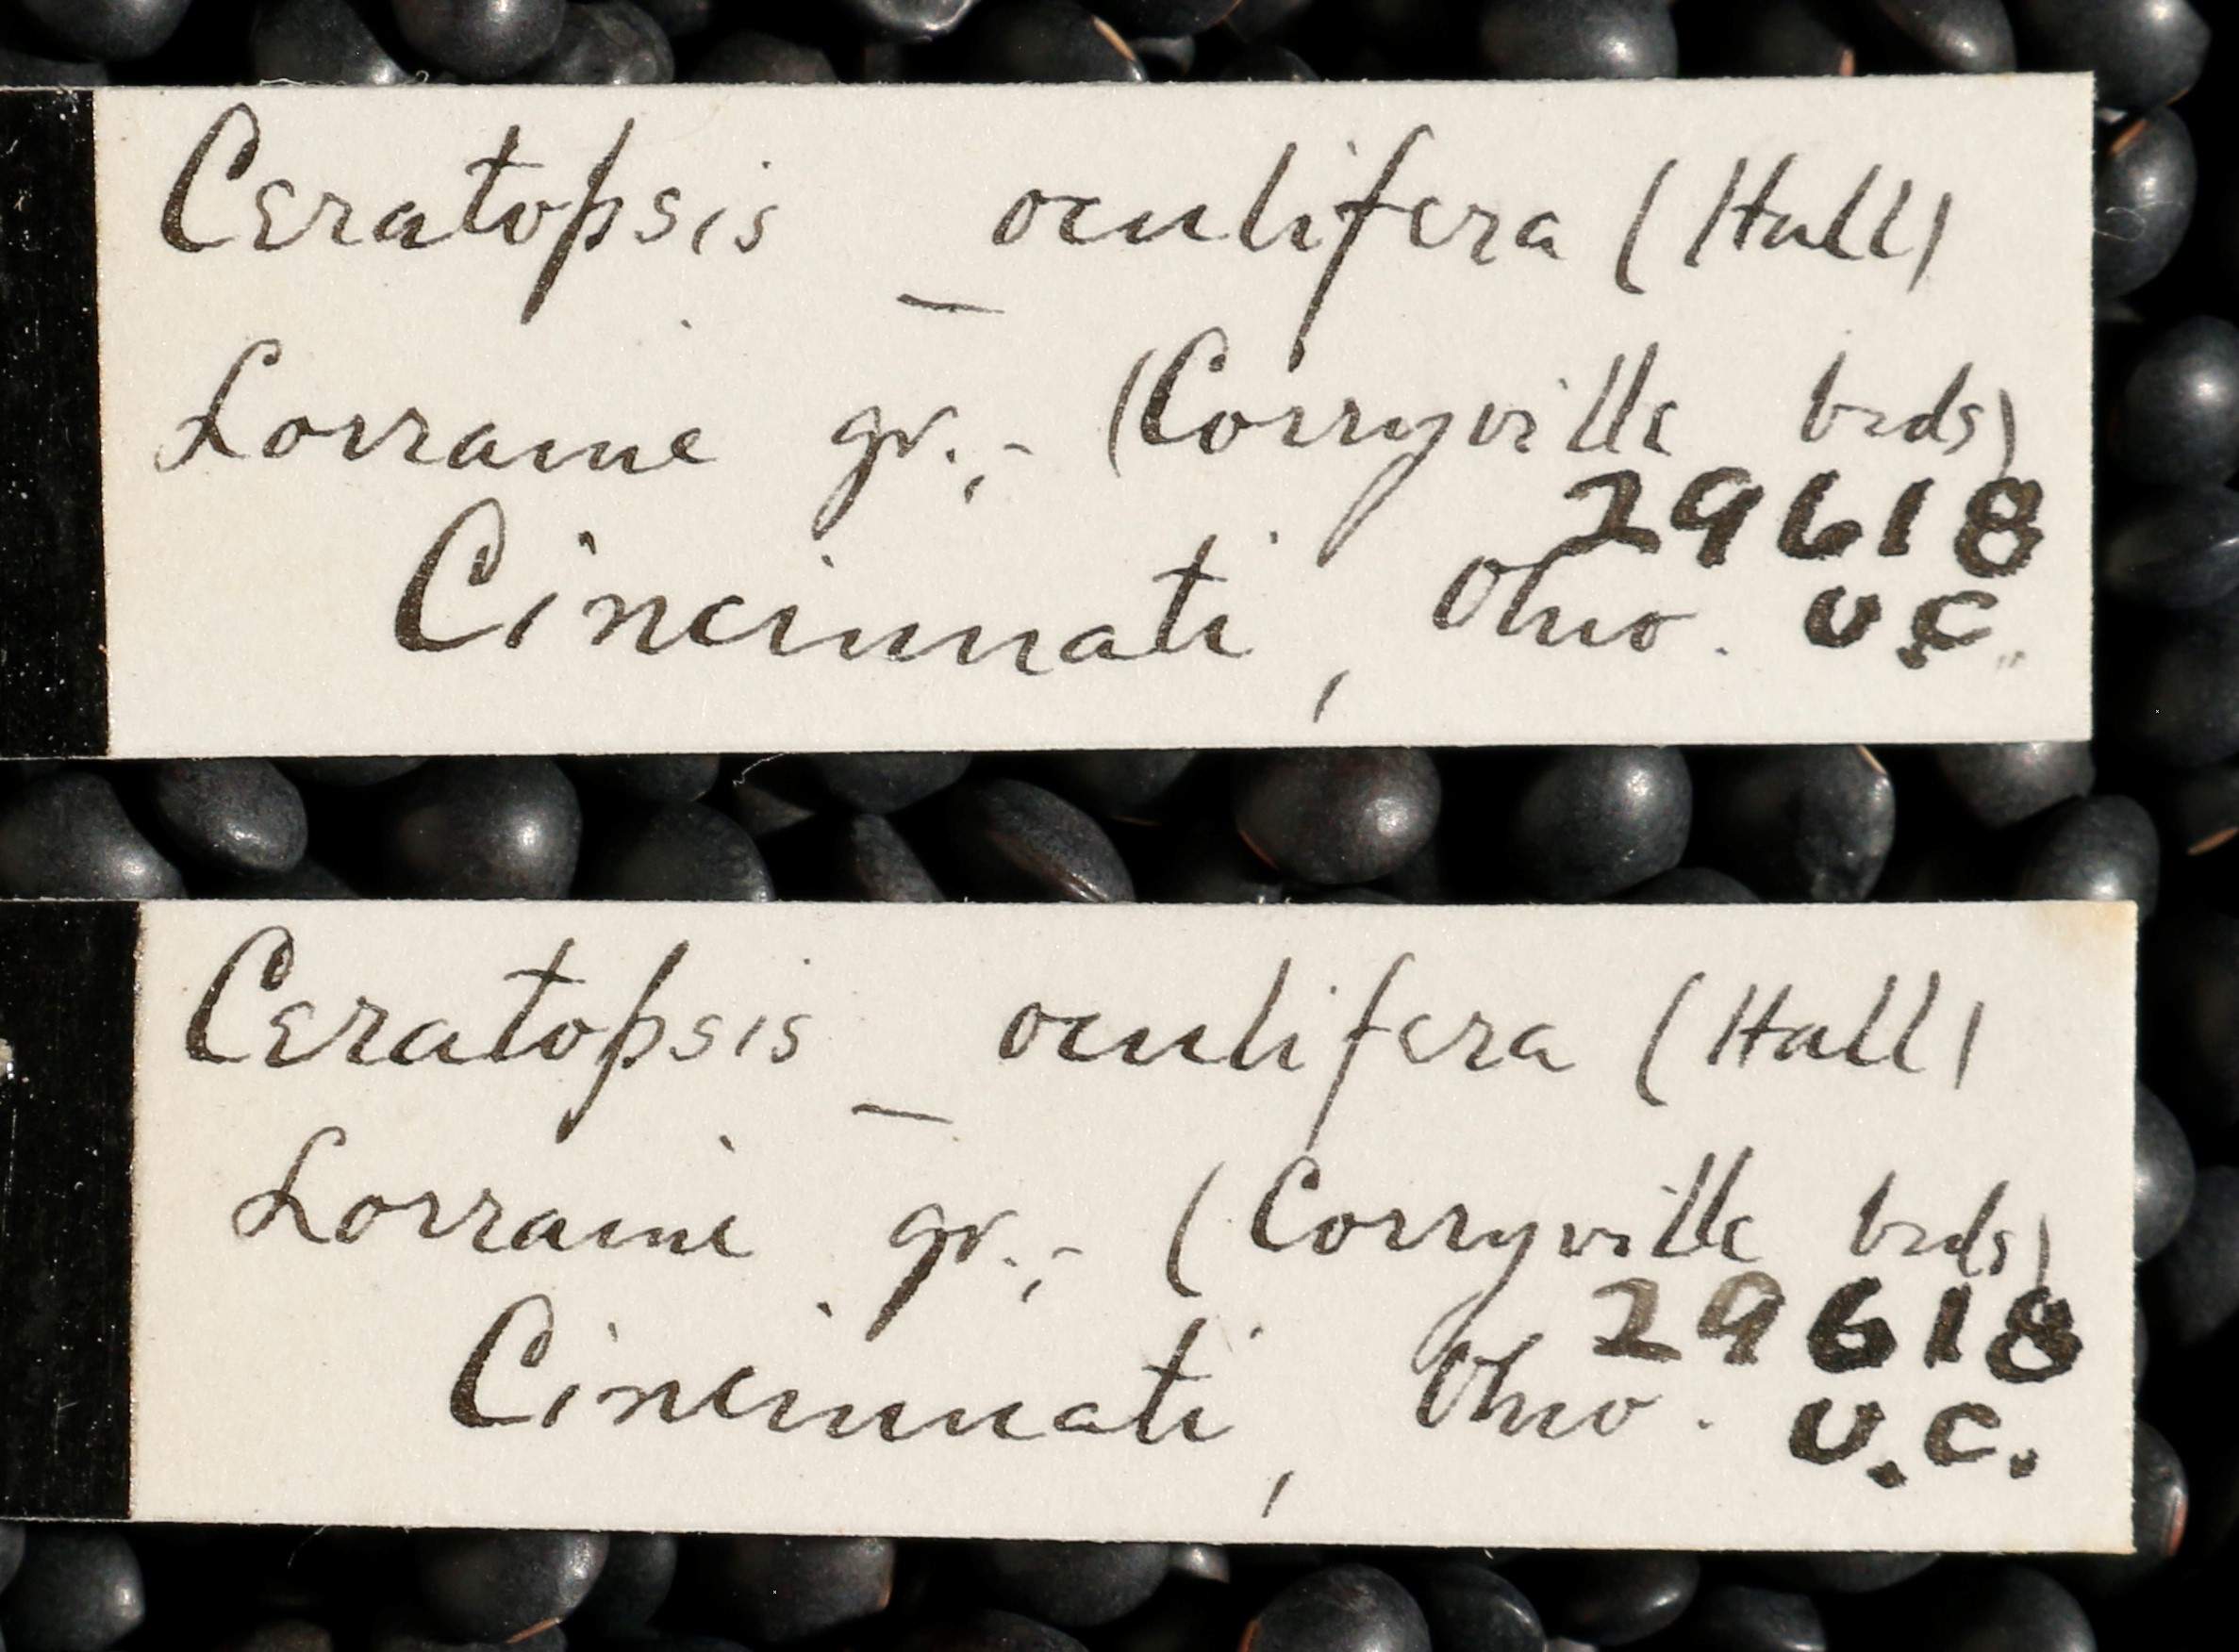 Ceratopsis _ oculifera (Hall)
Lorraine gr.,- (Corryville beds)
29618
Cincinnati, Ohio. U.C.
Ceratopsis _ oculifera (Hall)
Lorraine gr.,- (Corryville beds)
29618
Cincinnati, Ohio. U.C.